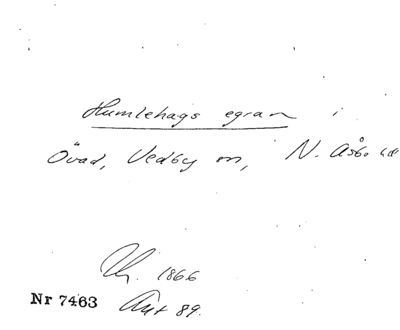 Humlehags egran i
Övad, Vedby sn, N. Åsbo hd
1866
Nr 7463
89.